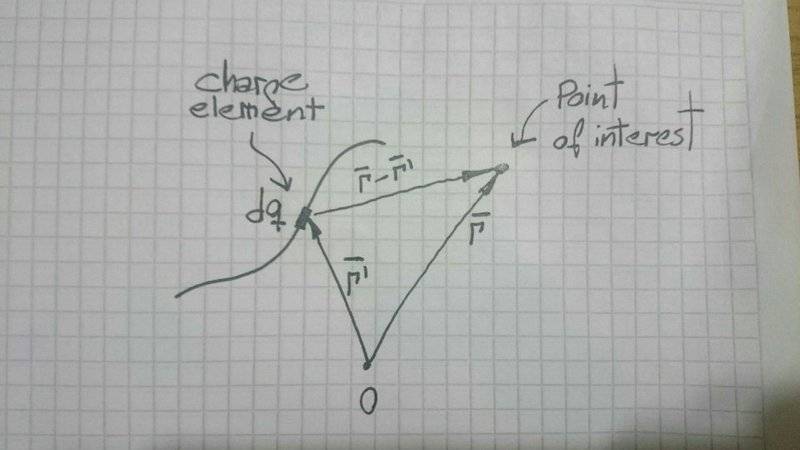 charge
element
Point
of interest
r̅-r̅'
dq
r̅
r̅'
O